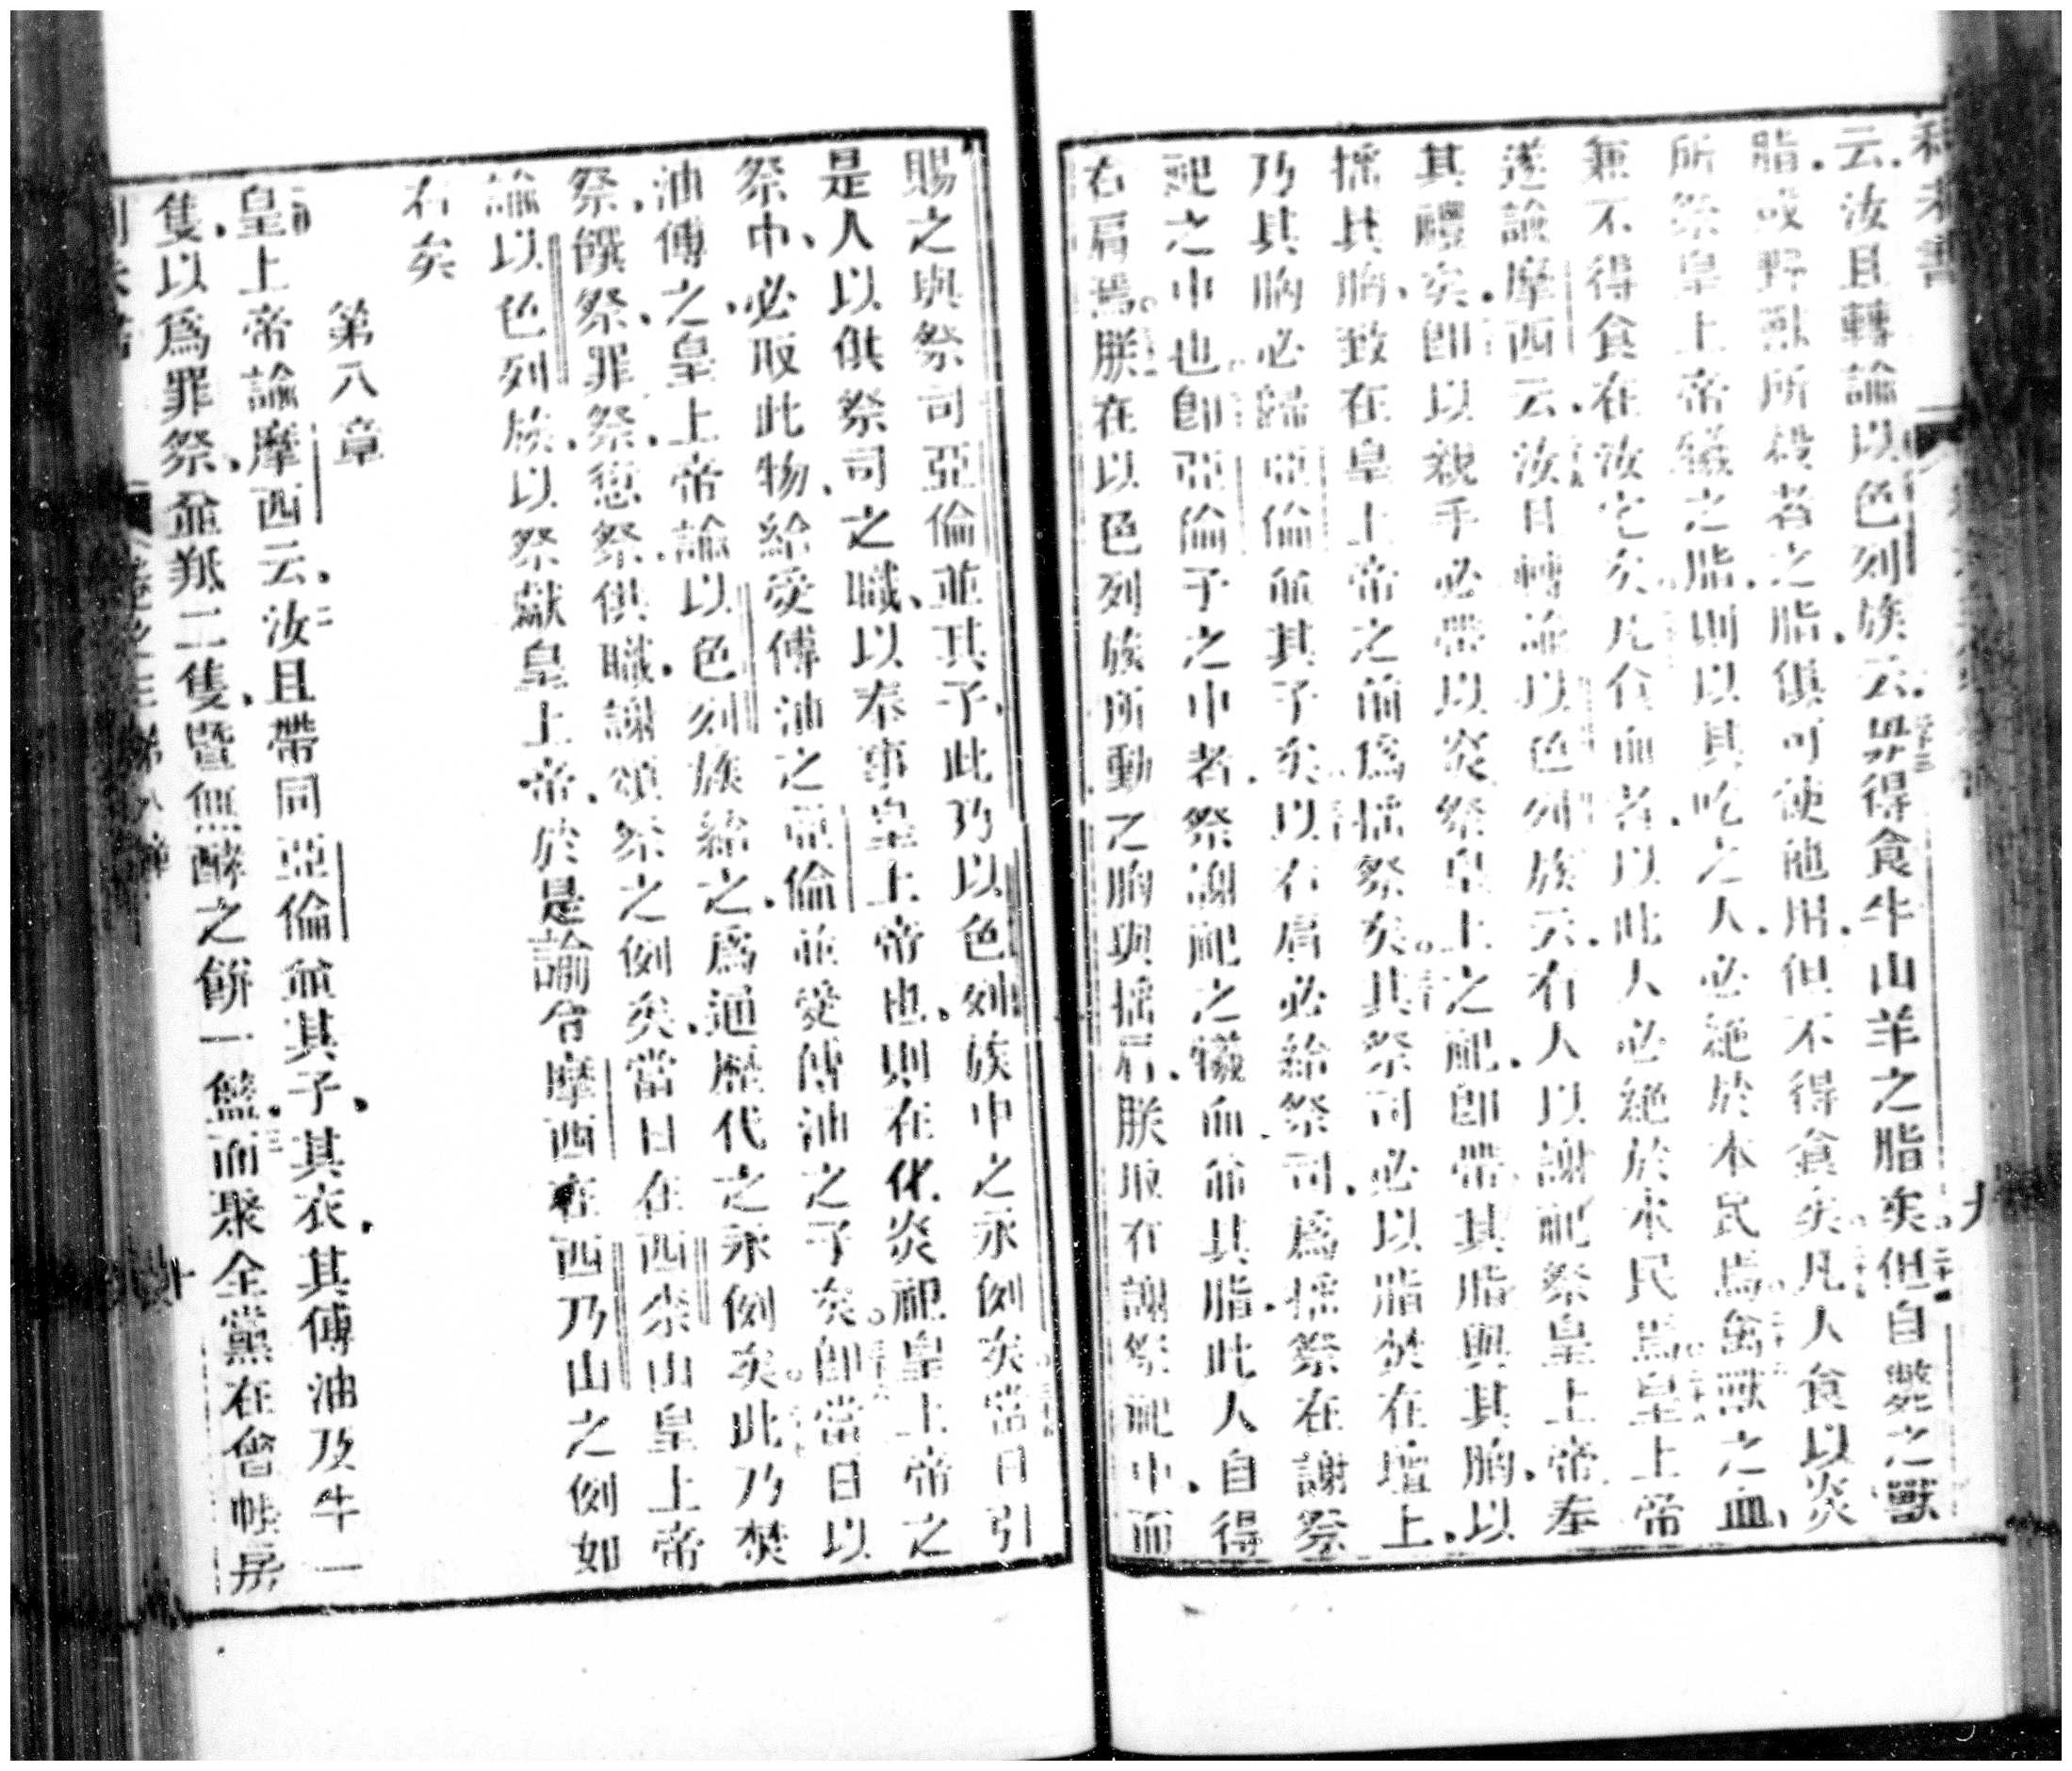 云汝且轉諭以色列族云毋得食牛山羊之脂矣但自斃之獸
脂或野獸所殺者之脂俱可使他用但不得食矣凡人食以炎
所祭皇上帝犧之脂則以其吃之人必絕於本民焉禽獸之血
兼不得食在汝宅矣凡食血者以此人必絕於本民焉皇上帝
遂諭摩西云汝且轉諭以色列族云有人以謝祀祭皇上帝奉
其禮矣卽以親手必帶以炎祭皇上之祀卽帶其脂與其胸以
搖其胸致在皇上帝之前爲搖祭矣其祭司必以脂焚在壇上
乃其胸必歸亞倫並其子矣以右肩必給祭司爲搖祭在謝祭
祀之中也卽亞倫子之中者祭謝祀之犧血並其脂此人自得
右肩焉朕在以色列族所動之胸與搖肩朕取在謝祭祀中而
賜之與祭司亞倫並其子此乃以色列族中之永例矣當日引
是人以供祭司之職以奉事皇上帝也則在化炎祀皇上帝之
祭中必取此物給受傅油之亞倫並受傅油之子矣卽當日以
油傅之皇上帝諭以色列族給之爲通歷代之永例矣此乃焚
祭饌祭罪祭愆祭供職謝頌祭之例矣當日在西柰山皇上帝
諭以色列族以祭獻皇上帝於是諭令摩西在西乃山之例如
右矣
第八章
皇上帝諭摩西云汝且帶同亞倫並其子其衣其傅油及牛一
隻以爲罪祭並羝二隻曁無酵之餅一籃而聚全黨在會帳房